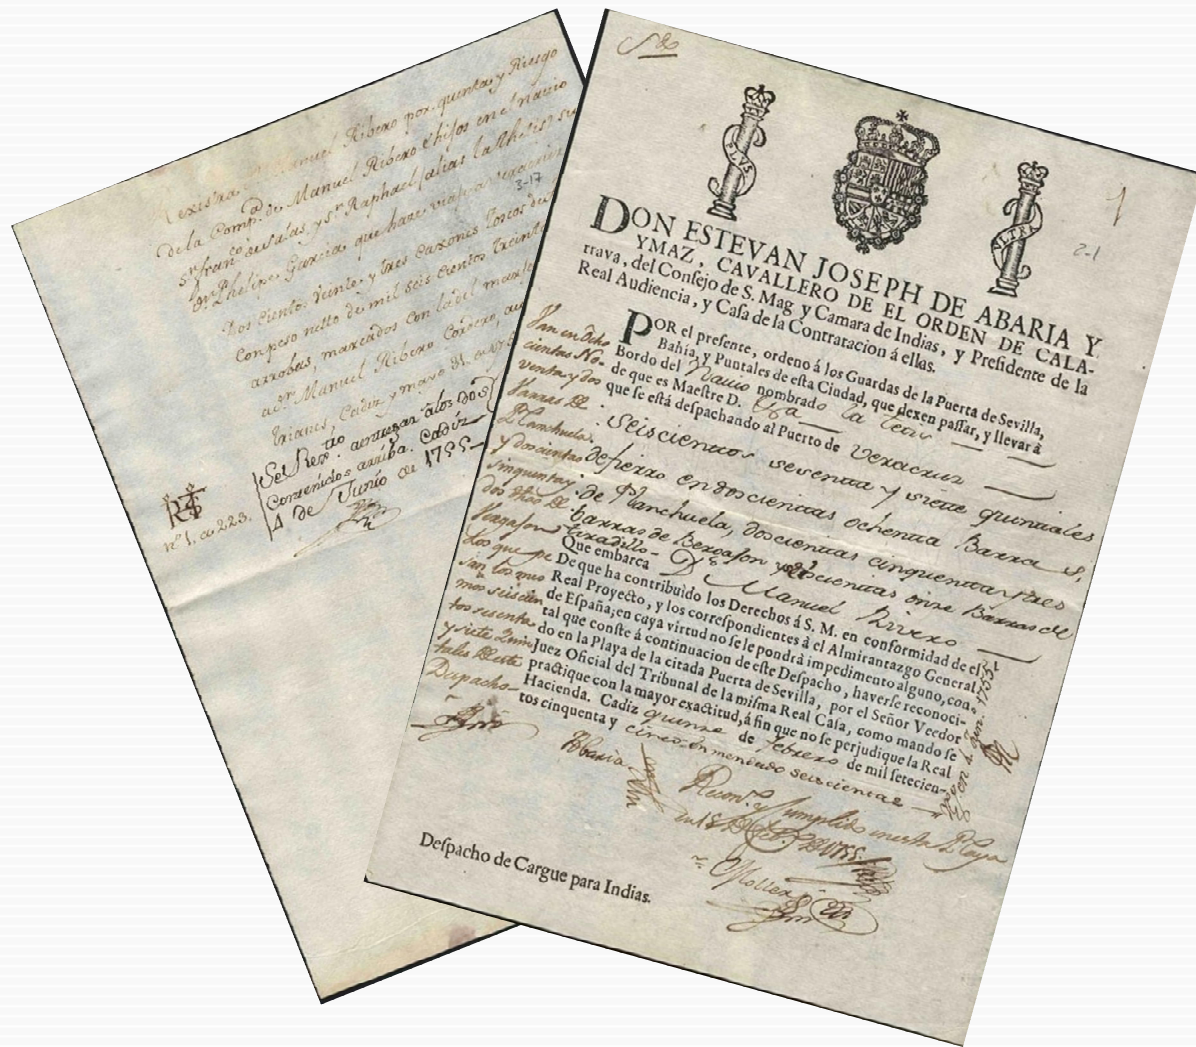 Rexistra Manuel Ribero por quenta, y Riesgo
de la Comp.ª de Manuel Ribero e hijos en el navio
y s.r Raphael, alias la
D.n Phelipe Garcia que hace viaje a
Dos ciento, veinte, y tres caxones toscos de
con peso netto de mil seis cientos treinta
arrobas, marcados con la del
a d.n Manuel Ribero Cordero,
Cadiz y mayo 31 de
Se Rex.tro entregar a los dos
Contenidos arriba. Cadiz
4 de Junio de 1755
n.º 1. a 223.
3-17
PLVS
VLTRA
2-1
DON ESTEVAN JOSEPH DE ABARIA Y
YMAZ, CAVALLERO DE EL ORDEN DE CALA-
trava, del Consejo de S. Mag y Camara de Indias, y Presidente de la
Real Audiencia, y Casa de la Contratacion á ellas.
POR el presente, ordeno á los Guardas de la Puerta de Sevilla,
Bahía, y Puntales de esta Ciudad, que dexen passar, y llevar à
Bordo del Navio nombrado
de que es Maestre D.
que se está despachando al Puerto de Veracruz
seiscientos sesenta y siete quintales
de fierro en doscientas ochenta Barras
de Planchuela, doscientas cinquenta y tres
barras de Bergason y doscientas once Barras de
Tiradillo-
Que embarca D.n Manuel Rivero
De que ha contribuìdo los Derechos á S. M. en conformidad de el
Real Proyecto, y los correspondientes à el Almirantazgo General
de España; en cuya virtud no se le pondrà impedimento alguno, con
tal que conste á continuacion de este Despacho, haverse reconoci-
do en la Playa de la citada Puerta de Sevilla, por el Señor Veedor
Juez Oficial del Tribunal de la misma Real Casa, como mando se
practique con la mayor exactitud, á fin que no se perjudique la Real
Hacienda. Cadiz quinze de Febrero de mil setecien-
tos cinquenta y cinco. enmendado seiscientas
Van en dicho
cientas No-
venta y dos
Varras de
Planchuela
y doscientas
sinquenta y
dos de
Vergason
los que pe
san los mis
mos seiscien
tos sesenta
y siete Quin
tales de este
Despacho-
Abaria
Recon.do y Cumplido en esta Playa
en 18 de Feb.o de 1755
Despacho de Cargue para Indias.